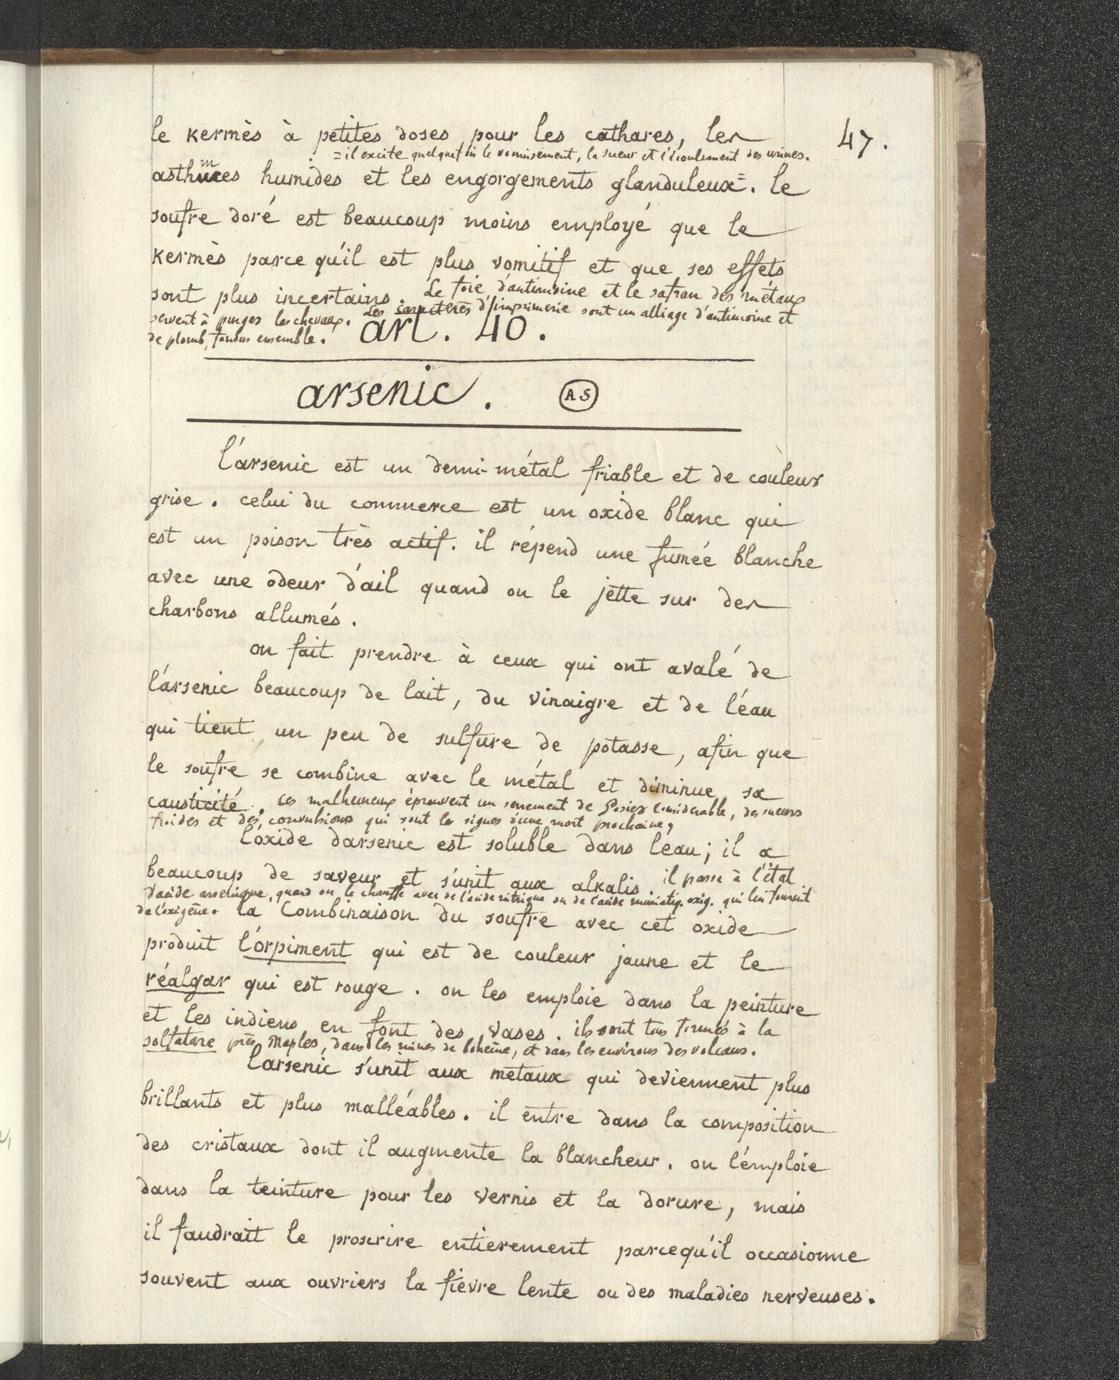 47.
le kermès à petites doses pour les cathares, les
= il excite quelquefois le vomissement, la sueur et l'écoulement des urines.
asthmes humides et les engorgements glanduleux =. le
soufre doré est beaucoup moins employé que le
kermès parce qu'il est plus vomitif et que ses effets
sont plus incertains. Le foie d'antimoine et le safran des métaux
servent à purger les chevaux. Les caractères d'imprimerie sont un alliage d'antimoine et
de plomb, fondus ensemble.
art. 40.
arsenic. AS
l'arsenic est un demi-métal friable et de couleur
grise. celui du commerce est un oxide blanc qui
est un poison très actif. il répend une fumée blanche
avec une odeur d'ail quand on le jette sur des
charbons allumés.
on fait prendre à ceux qui ont avalé de
l'arsenic beaucoup de lait, du vinaigre et de l'eau
qui tient un peu de sulfure de potasse, afin que
le soufre se combine avec le métal et diminue sa
causticité. ces malheureux éprouvent un serrement de gosier considérable, des sueurs
froides et des convulsions qui sont les signes d'une mort prochaine,
l'oxide d'arsenic est soluble dans l'eau; il a
beaucoup de saveur et s'unit aux alkalis. il passe à l'état
d'acide arsenique, quand on le chauffe avec de l'acide nitrique ou de l'acide muriatiq. oxig. qui lui fournit
de l'oxigène. la Combinaison du soufre avec cet oxide
produit l'orpiment qui est de couleur jaune et le
réalgar qui est rouge. on les emploie dans la peinture
et les indiens en font des vases. ils sont tous formés à la
solfatare près Naples, dans les mines de bohême, et dans les environs des volcans.
l'arsenic s'unit aux métaux qui deviennent plus
brillants et plus malléables. il entre dans la composition
des cristaux dont il augmente la blancheur. on l'emploie
dans la teinture pour les vernis et la dorure, mais
il faudrait le proscrire entierement parcequ'il occasionne
souvent aux ouvriers la fièvre lente ou des maladies nerveuses.